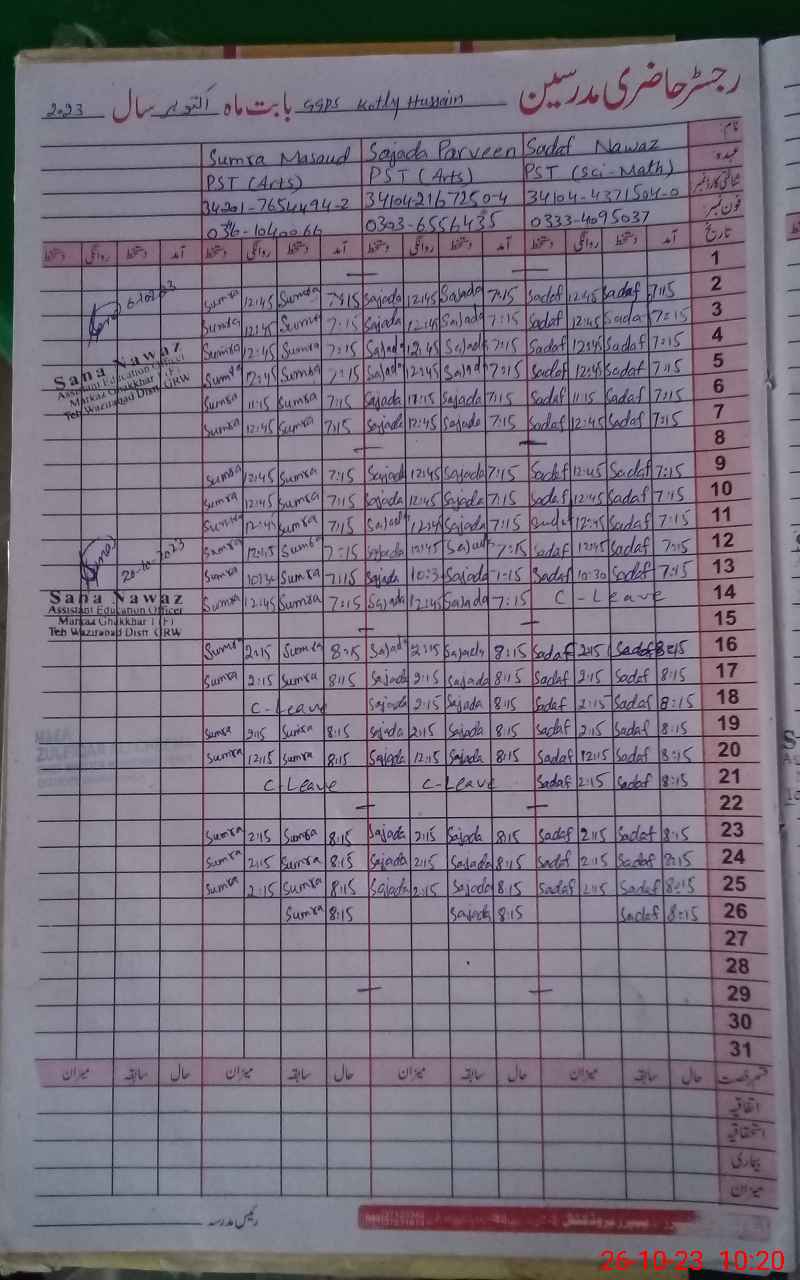 رجسٹر حاضری مدرسین
بابت ماہ اکتوبر سال 2023 GGPS Kotly Hussain
نام: Sadaf Nawaz Sajada Parveen Sumra Masaud
عہدہ PST (Sci-Math) PST (Arts) PST (Arts)
شناختی کارڈ نمبر 34104-4371504-0 34104-2167250-4 34201-7654494-2
فون نمبر 0333-4095037 0303-6556435
تاریخ آمد دستخط روانگی دستخط آمد دستخط روانگی دستخط آمد دستخط روانگی دستخط آمد دستخط روانگی دستخط
1 — —
2 7:15 Sadaf 12:45 Sadaf 7:15 Sajada 12:45 Sajada 7:15 Sumra 12:45 Sumra
3 7:15 Sadaf 12:45 Sadaf 7:15 Sajada 12:45 Sajada 7:15 Sumra 12:45 Sumra
4 7:15 Sadaf 12:45 Sadaf 7:15 Sajada 12:45 Sajada 7:15 Sumra 12:45 Sumra
5 7:15 Sadaf 12:45 Sadaf 7:15 Sajada 12:45 Sajada 7:15 Sumra 12:45 Sumra
6 7:15 Sadaf 11:15 Sadaf 7:15 Sajada 11:15 Sajada 7:15 Sumra 11:15 Sumra
7 7:15 Sadaf 12:45 Sadaf 7:15 Sajada 12:45 Sajada 7:15 Sumra 12:45 Sumra
8 — —
9 7:15 Sadaf 12:45 Sadaf 7:15 Sajada 12:45 Sajada 7:15 Sumra 12:45 Sumra
10 7:15 Sadaf 12:45 Sadaf 7:15 Sajada 12:45 Sajada 7:15 Sumra 12:45 Sumra
11 7:15 Sadaf 12:45 Sadaf 7:15 Sajada 12:45 Sajada 7:15 Sumra 12:45 Sumra
12 7:15 Sadaf 12:45 Sadaf 7:15 Sajada 12:45 Sajada 7:15 Sumra 12:45 Sumra
13 7:15 Sadaf 10:30 Sadaf 7:15 Sajada 10:3 Sajada 7:15 Sumra 10:30 Sumra
14 C-Leave 7:15 Sajada 12:45 Sajada 7:15 Sumra 12:45 Sumra
15 — —
16 8:15 Sadaf 2:15 Sadaf 8:15 Sajada 2:15 Sajada 8:15 Sumra 2:15 Sumra
17 8:15 Sadaf 2:15 Sadaf 8:15 Sajada 2:15 Sajada 8:15 Sumra 2:15 Sumra
18 8:15 Sadaf 2:15 Sadaf 8:15 Sajada 2:15 Sajada C-Leave
19 8:15 Sadaf 2:15 Sadaf 8:15 Sajada 2:15 Sajada 8:15 Sumra 2:15 Sumra
20 8:15 Sadaf 12:15 Sadaf 8:15 Sajada 12:15 Sajada 8:15 Sumra 12:15 Sumra
21 8:15 Sadaf 2:15 Sadaf C-Leave C-Leave
22 — —
23 8:15 Sadaf 2:15 Sadaf 8:15 Sajada 2:15 Sajada 8:15 Sumra 2:15 Sumra
24 8:15 Sadaf 2:15 Sadaf 8:15 Sajada 2:15 Sajada 8:15 Sumra 2:15 Sumra
25 8:15 Sadaf 2:15 Sadaf 8:15 Sajada 2:15 Sajada 8:15 Sumra 2:15 Sumra
26 8:15 Sadaf 8:15 Sajada 8:15 Sumra
27
28
29 — —
30
31
6-10-2023
Sana Nawaz
Assistant Education Officer
Markaz Ghakkhar I (F)
Teh Wazirabad Distt. GRW
20-10-2023
Sana Nawaz
Assistant Education Officer
Markaz Ghakkhar I (F)
Teh Wazirabad Distt. GRW
قسم رخصت حال سابقہ میزان حال سابقہ میزان حال سابقہ میزان حال سابقہ میزان
اتفاقیہ
استحقاقیہ
بیماری
میزان
رئیس مدرسہ
26-10-23 10:20